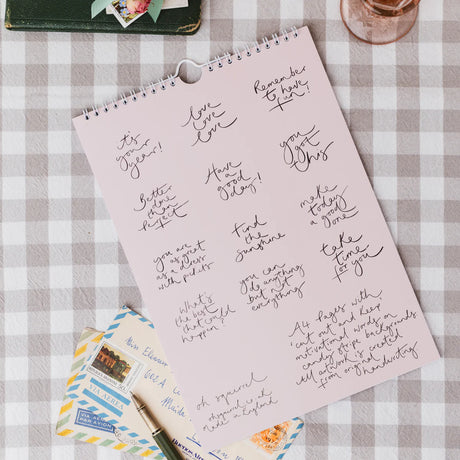 it's
your
year!
love
love
love
Remember
to have
fun!
Better
done
than
perfect
Have
a
good
day!
you
got
this
you are
as great
as a dress
with pockets
find
the
sunshine
make
today
a good
one
what's
the best
that could
happen?
you can
do anything
but not
everything
take
time
for you
A4 Pages with
'cut out and keep'
motivational words on
candy stripe backgrounds
All artwork is created
from original
handwriting
oh squirrel
made in England
PAR AVION